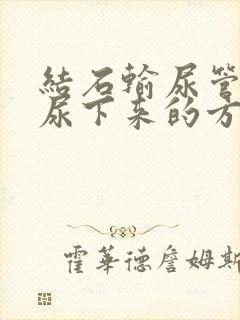 結石輸尿管
尿下来的方
霍華德詹姆斯